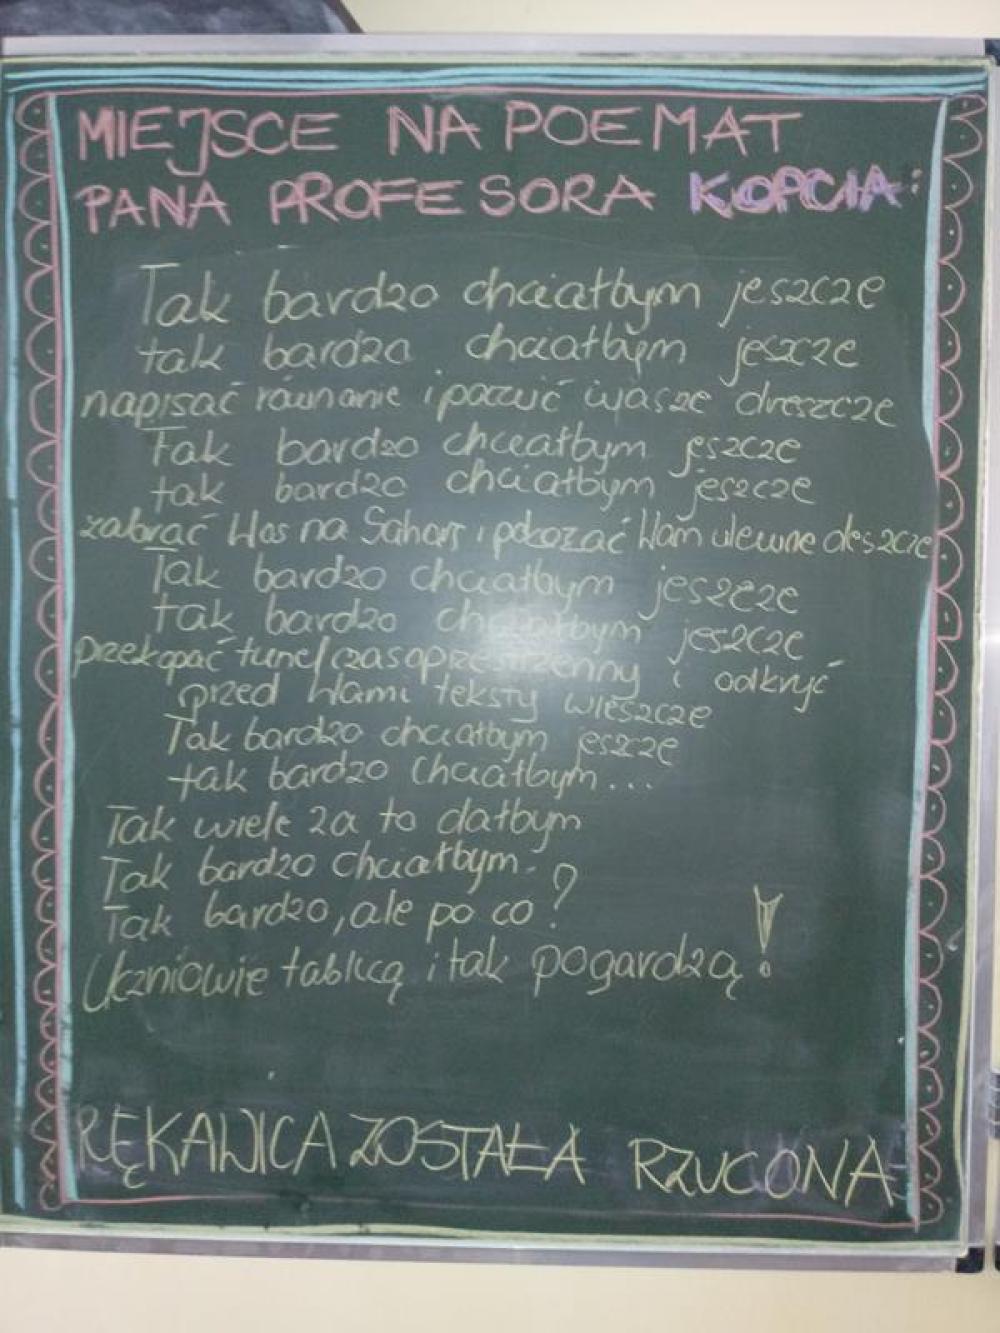 MIEJSCE NA POEMAT
PANA PROFESORA KOPCIA:
Tak bardzo chciałbym jeszcze
tak bardzo chciałbym jeszcze
napisać równanie i poczuć wasze dreszcze
Tak bardzo chciałbym jeszcze
tak bardzo chciałbym jeszcze
zabrać Was na Saharę i pokazać Wam ulewne deszcze
Tak bardzo chciałbym jeszcze
tak bardzo chciałbym jeszcze
przekopać tunel czasoprzestrzenny i odkryć
przed Wami teksty wieszcze
Tak bardzo chciałbym jeszcze
tak bardzo chciałbym...
Tak wiele za to dałbym
Tak bardzo chciałbym.
Tak bardzo, ale po co?
Uczniowie tablicą i tak pogardzą!
RĘKAWICA ZOSTAŁA RZUCONA